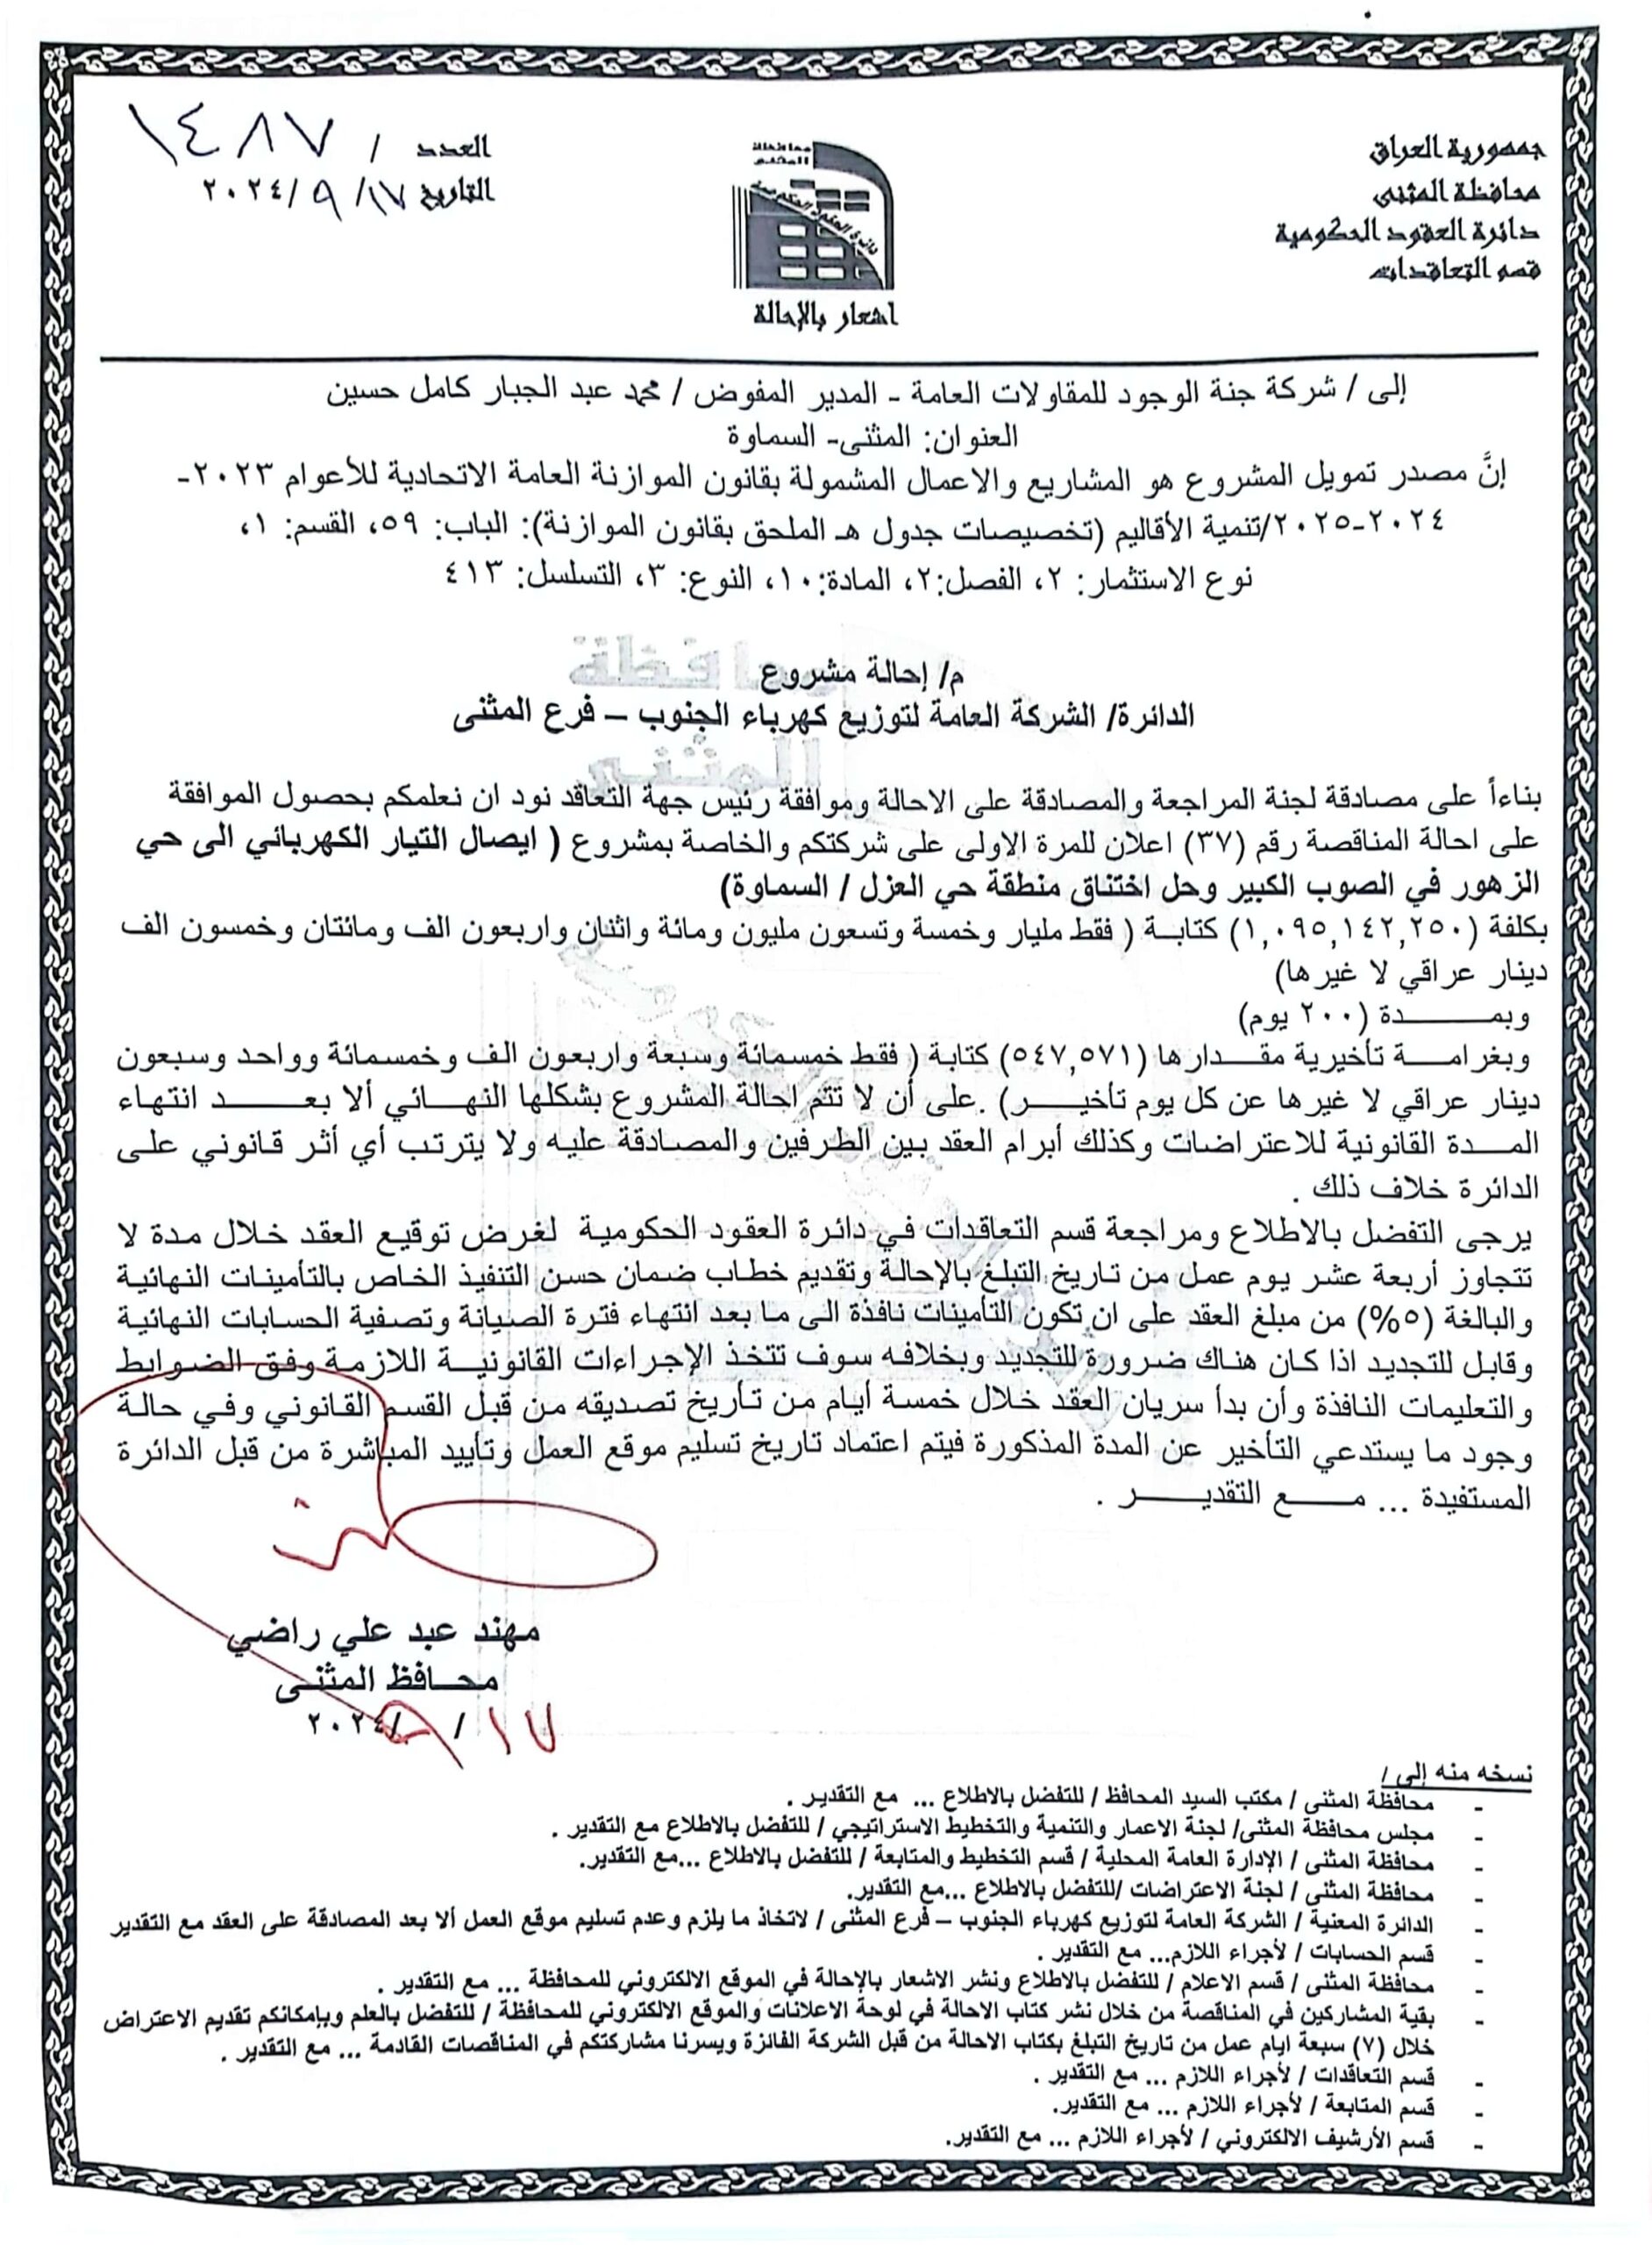 جمهورية العراق
محافظة المثنى
دائرة العقود الحكومية
قسم التعاقدات
العدد / ١٤٨٧
التاريخ ١٧/ ٩ /٢٠٢٤
محافظة
المثنى
دائرة العقود الحكومية
اشعار بالإحالة
إلى / شركة جنة الوجود للمقاولات العامة - المدير المفوض / محمد عبد الجبار كامل حسين
العنوان: المثنى- السماوة
إنَّ مصدر تمويل المشروع هو المشاريع والاعمال المشمولة بقانون الموازنة العامة الاتحادية للأعوام ٢٠٢٣-
٢٠٢٤-٢٠٢٥/تنمية الأقاليم (تخصيصات جدول هـ الملحق بقانون الموازنة): الباب: ٥٩، القسم: ١،
نوع الاستثمار: ٢، الفصل:٢، المادة:١٠، النوع: ٣، التسلسل: ٤١٣
م/ إحالة مشروع
الدائرة/ الشركة العامة لتوزيع كهرباء الجنوب – فرع المثنى
بناءاً على مصادقة لجنة المراجعة والمصادقة على الاحالة وموافقة رئيس جهة التعاقد نود ان نعلمكم بحصول الموافقة
على احالة المناقصة رقم (٣٧) اعلان للمرة الاولى على شركتكم والخاصة بمشروع ( ايصال التيار الكهربائي الى حي
الزهور في الصوب الكبير وحل اختناق منطقة حي العزل / السماوة)
بكلفة (١,٠٩٥,١٤٢,٢٥٠) كتابــة ( فقط مليار وخمسة وتسعون مليون ومائة واثنان واربعون الف ومائتان وخمسون الف
دينار عراقي لا غيرها)
وبمــــــدة (٢٠٠ يوم)
وبغرامـــة تأخيرية مقــدارها (٥٤٧,٥٧١) كتابة ( فقط خمسمائة وسبعة واربعون الف وخمسمائة وواحد وسبعون
دينار عراقي لا غيرها عن كل يوم تأخيــــر) .على أن لا تتم احالة المشروع بشكلها النهــائي ألا بعــــد انتهاء
المـــدة القانونية للاعتراضات وكذلك أبرام العقد بين الطرفين والمصادقة عليه ولا يترتب أي أثر قانوني على
الدائرة خلاف ذلك .
يرجى التفضل بالاطلاع ومراجعة قسم التعاقدات في دائرة العقود الحكومية لغرض توقيع العقد خلال مدة لا
تتجاوز أربعة عشر يوم عمل من تاريخ التبلغ بالإحالة وتقديم خطاب ضمان حسن التنفيذ الخاص بالتأمينات النهائية
والبالغة (٥%) من مبلغ العقد على ان تكون التأمينات نافذة الى ما بعد انتهاء فترة الصيانة وتصفية الحسابات النهائية
وقابل للتجديد اذا كان هناك ضرورة للتجديد وبخلافه سوف تتخذ الإجراءات القانونيــة اللازمـة وفق الضوابط
والتعليمات النافذة وأن بدأ سريان العقد خلال خمسة أيام من تأريخ تصديقه من قبل القسم القانوني وفي حالة
وجود ما يستدعي التأخير عن المدة المذكورة فيتم اعتماد تاريخ تسليم موقع العمل وتأييد المباشرة من قبل الدائرة
المستفيدة ... مـــــع التقديــــــر .
مهند عبد علي راضي
محـــافظ المثنــى
١٧ / ٩/ ٢٠٢٤
نسخه منه إلى /
- محافظة المثنى / مكتب السيد المحافظ / للتفضل بالاطلاع ... مع التقدير .
- مجلس محافظة المثنى/ لجنة الاعمار والتنمية والتخطيط الاستراتيجي / للتفضل بالاطلاع مع التقدير .
- محافظة المثنى / الإدارة العامة المحلية / قسم التخطيط والمتابعة / للتفضل بالاطلاع ...مع التقدير.
- محافظة المثنى / لجنة الاعتراضات /للتفضل بالاطلاع ...مع التقدير.
- الدائرة المعنية / الشركة العامة لتوزيع كهرباء الجنوب – فرع المثنى / لاتخاذ ما يلزم وعدم تسليم موقع العمل ألا بعد المصادقة على العقد مع التقدير
- قسم الحسابات / لأجراء اللازم... مع التقدير .
- محافظة المثنى / قسم الاعلام / للتفضل بالاطلاع ونشر الاشعار بالإحالة في الموقع الالكتروني للمحافظة ... مع التقدير .
- بقية المشاركين في المناقصة من خلال نشر كتاب الاحالة في لوحة الاعلانات والموقع الالكتروني للمحافظة / للتفضل بالعلم وبإمكانكم تقديم الاعتراض
خلال (٧) سبعة ايام عمل من تاريخ التبلغ بكتاب الاحالة من قبل الشركة الفائزة ويسرنا مشاركتكم في المناقصات القادمة ... مع التقدير .
- قسم التعاقدات / لأجراء اللازم ... مع التقدير .
- قسم المتابعة / لأجراء اللازم ... مع التقدير.
- قسم الأرشيف الالكتروني / لأجراء اللازم ... مع التقدير.